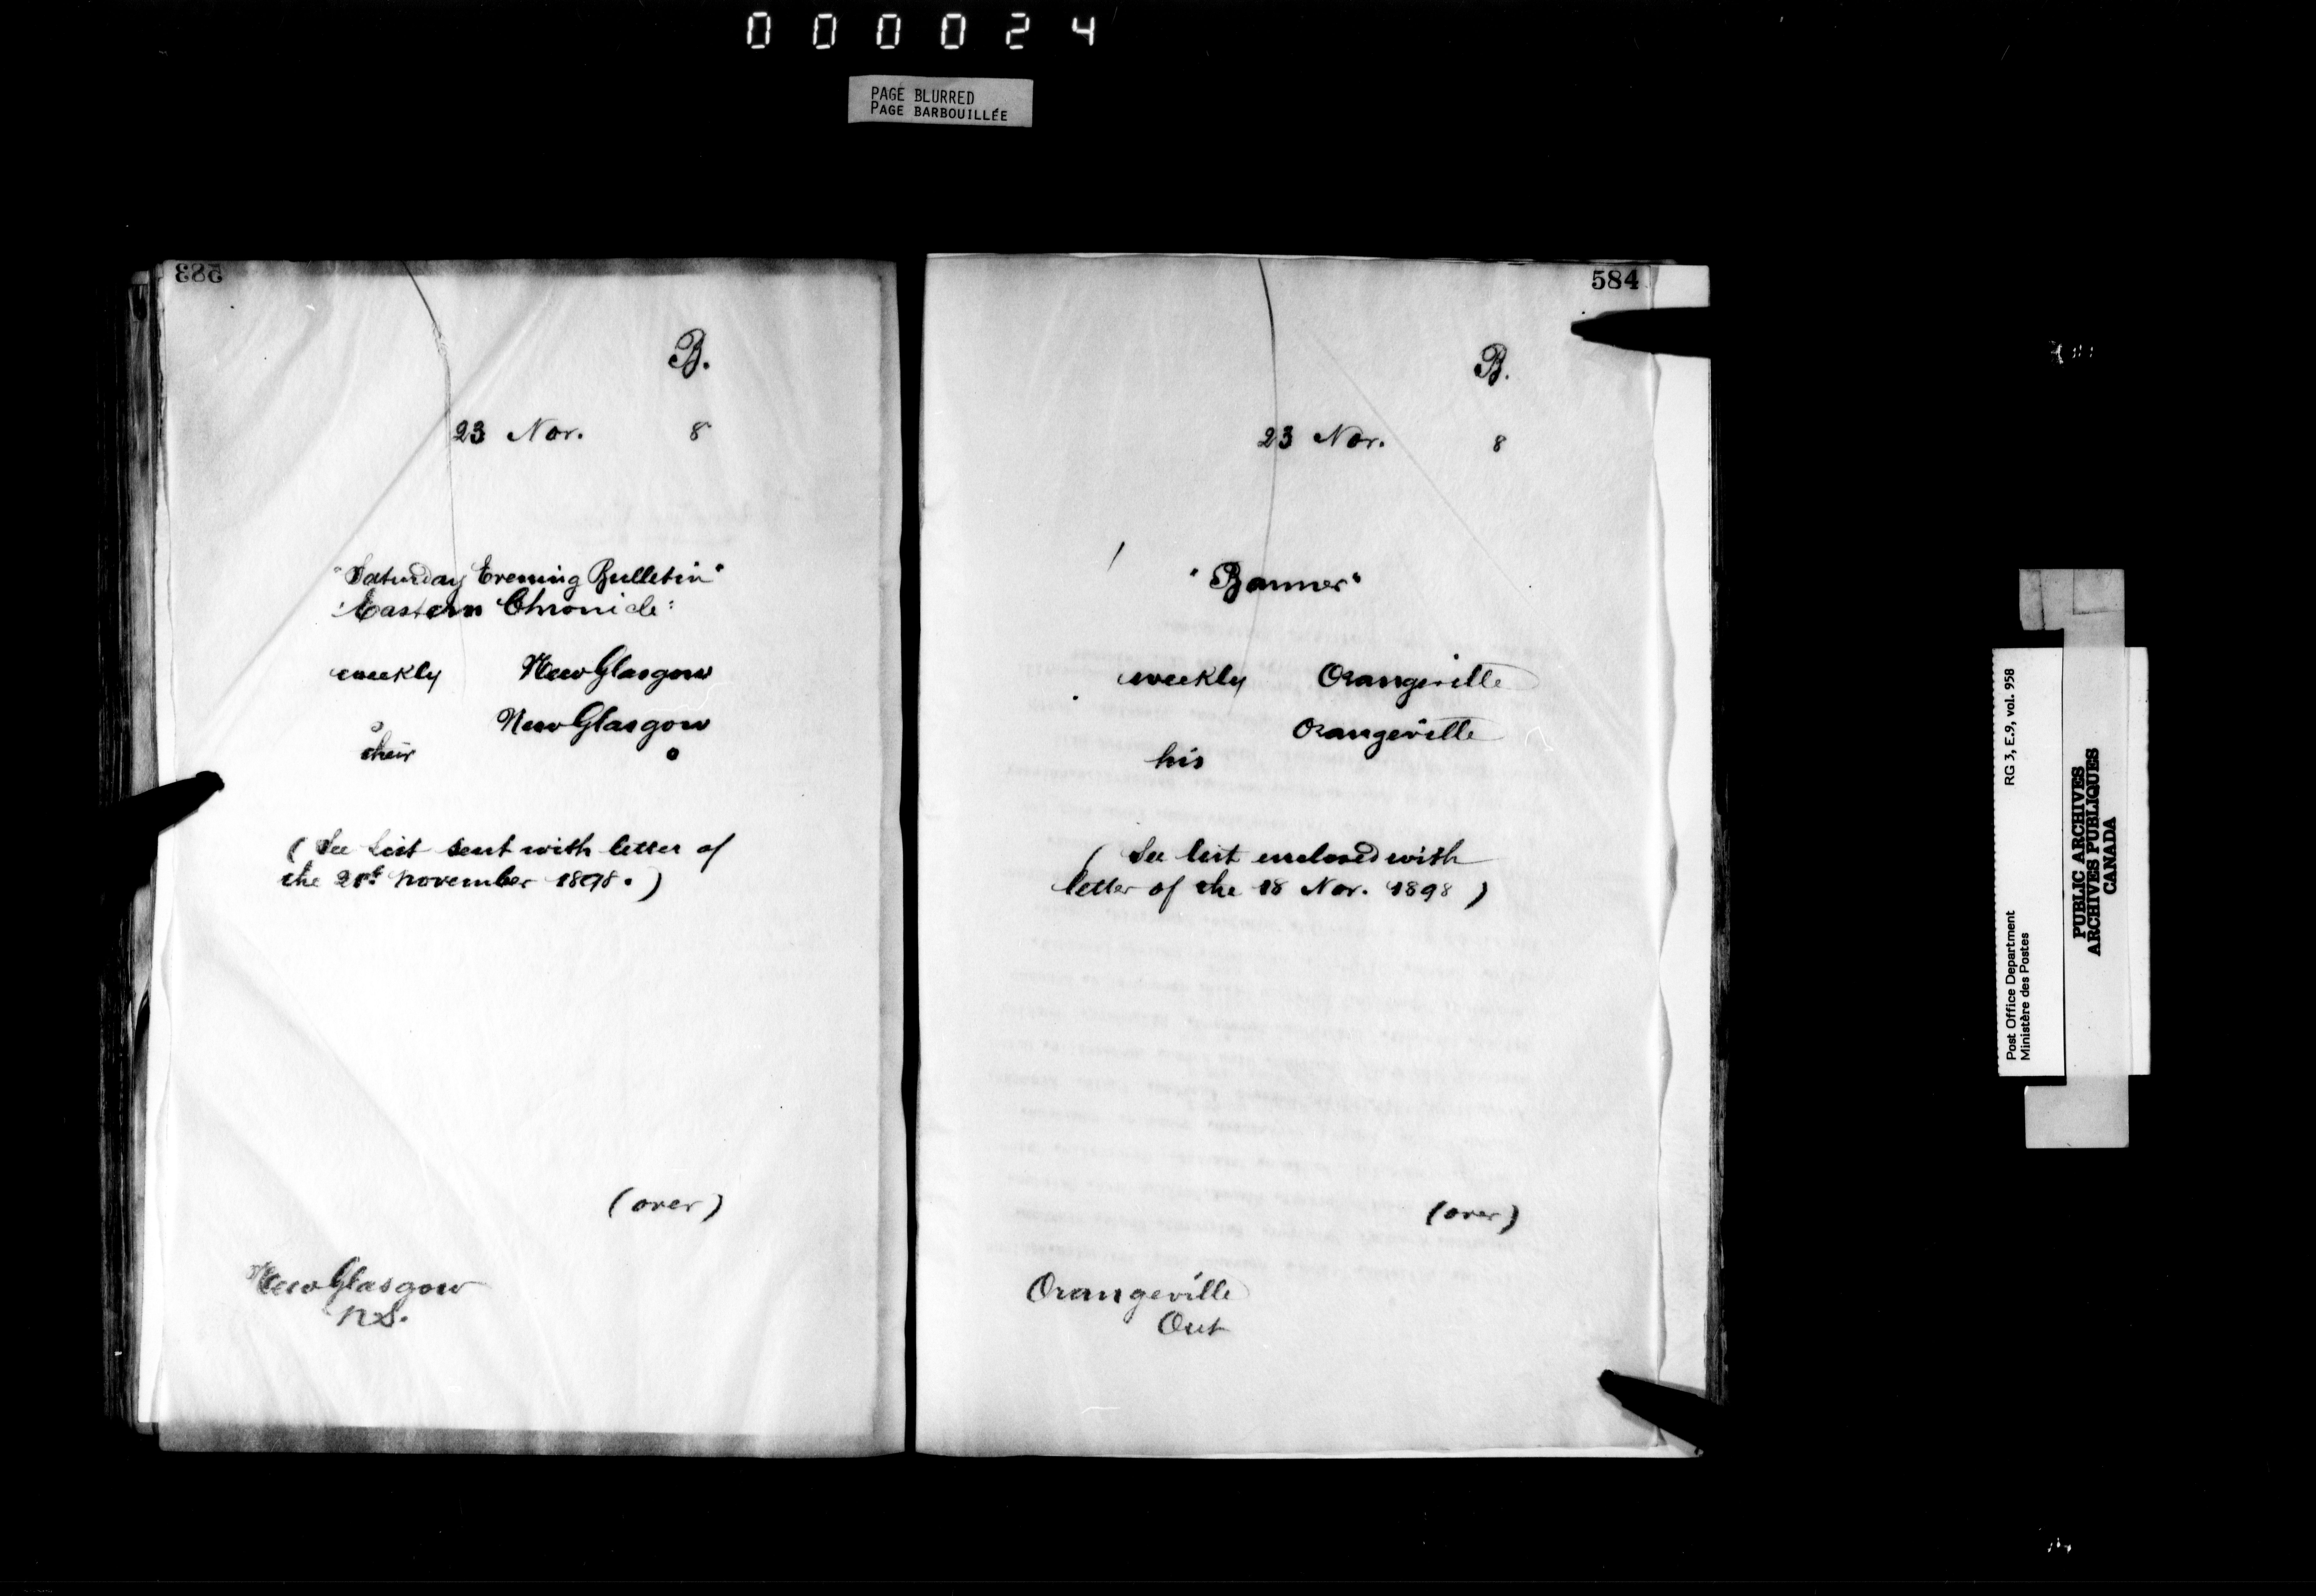 000024
PAGE BLURRED
PAGE BARBOUILLÉE
583
B.
23 Nov. 8
"Saturday Evening Bulletin"
"Eastern Chronicle"
weekly New Glasgow
New Glasgow
their
(See list sent with letter of
the 21st November 1898.)
(over)
New Glasgow
N.S.
584
B.
23 Nov. 8
"Banner"
weekly Orangeville
Orangeville
his
(See list enclosed with
letter of the 18 Nov. 1898)
(over)
Orangeville
Ont
Post Office Department RG 3, E.9, vol. 958
Ministère des Postes
PUBLIC ARCHIVES
ARCHIVES PUBLIQUES
CANADA